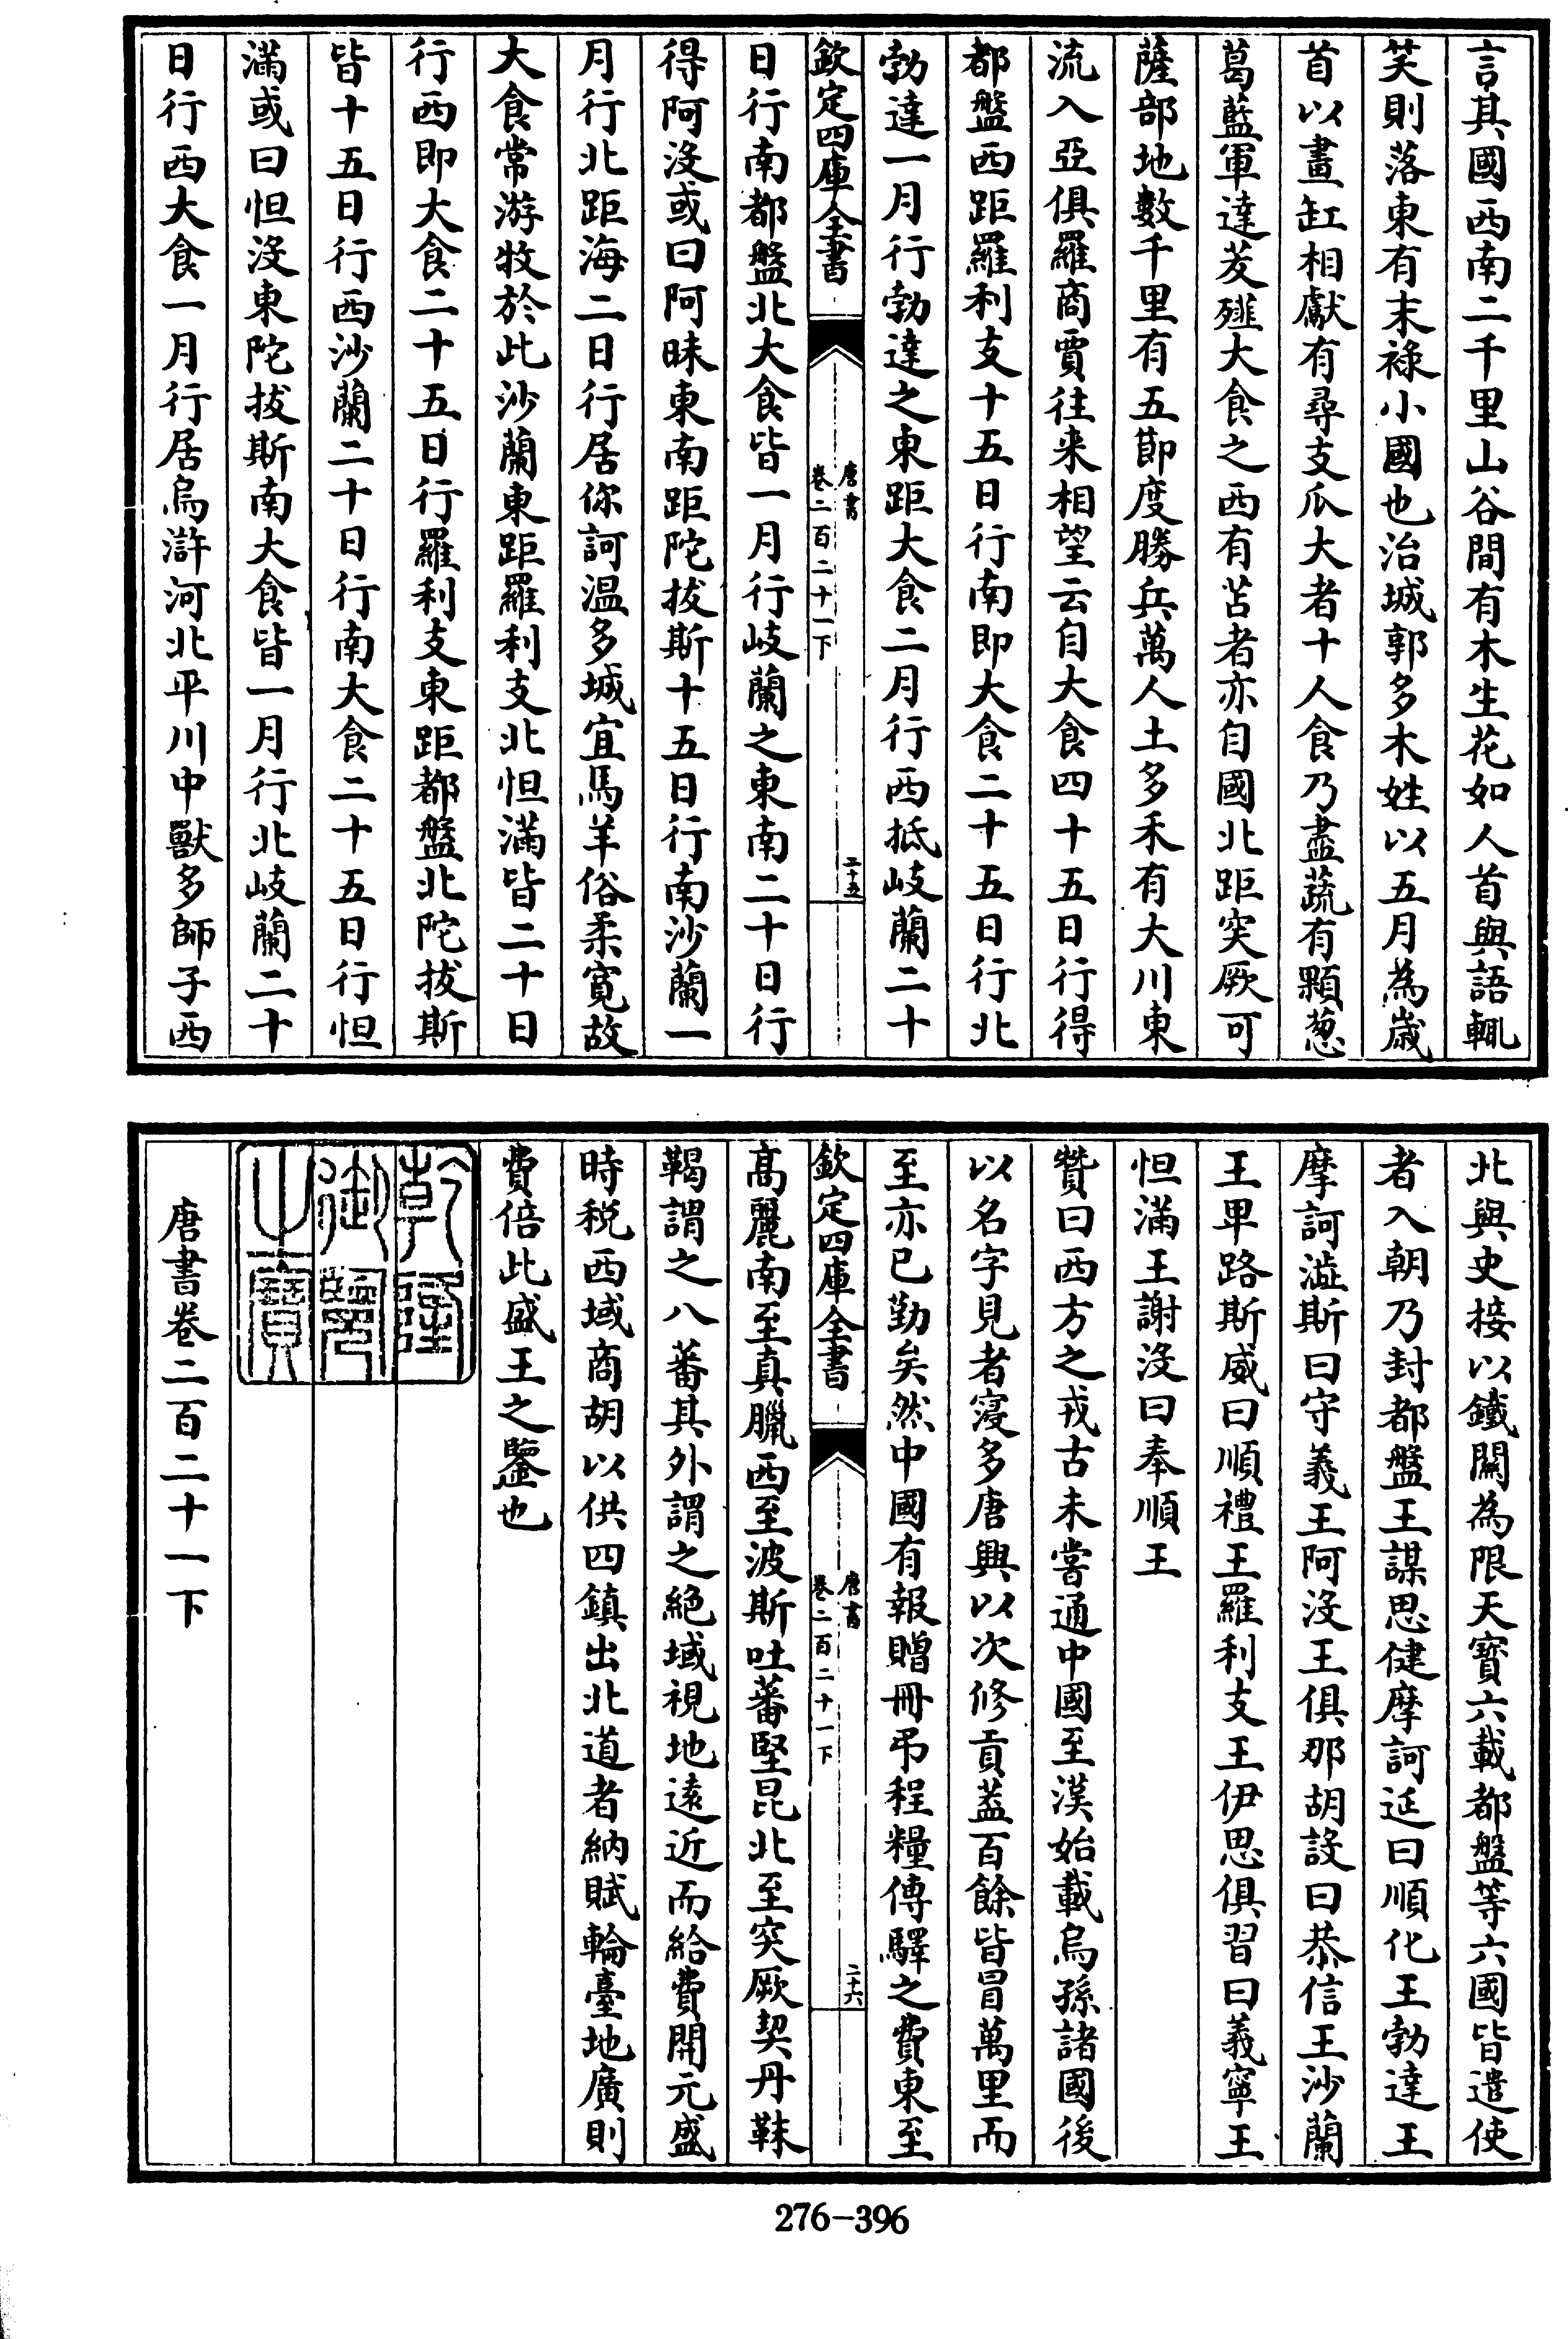 言其國西南二千里山谷間有木生花如人首與語輒
笑則落東有末祿小國也治城郭多木姓以五月為歲
首以畫缸相獻有尋支瓜大者十人食乃盡蔬有顆葱
葛藍軍達茇薤大食之西有苫者亦自國北距突厥可
薩部地數千里有五節度勝兵萬人土多禾有大川東
流入亞俱羅商賈往来相望云自大食四十五日行得
都盤西距羅利支十五日行南即大食二十五日行北
勃達一月行勃達之東距大食二月行西抵岐蘭二十
欽定四庫全書
唐書
卷二百二十一下
二十五
日行南都盤北大食皆一月行岐蘭之東南二十日行
得阿沒或曰阿昧東南距陀拔斯十五日行南沙蘭一
月行北距海二日行居你訶温多城宜馬羊俗柔寬故
大食常游牧於此沙蘭東距羅利支北怛滿皆二十日
行西即大食二十五日行羅利支東距都盤北陀拔斯
皆十五日行西沙蘭二十日行南大食二十五日行怛
滿或曰怛沒東陀拔斯南大食皆一月行北岐蘭二十
日行西大食一月行居烏滸河北平川中獸多師子西
北與史接以鐵關為限天寶六載都盤等六國皆遣使
者入朝乃封都盤王謀思健摩訶延曰順化王勃達王
摩訶澁斯曰守義王阿沒王俱那胡設曰恭信王沙蘭
王卑路斯威曰順禮王羅利支王伊思俱習曰義寧王
怛滿王謝沒曰奉順王
贊曰西方之戎古未嘗通中國至漢始載烏孫諸國後
以名字見者寖多唐興以次修貢葢百餘皆冒萬里而
至亦已勤矣然中國有報贈冊弔程糧傳驛之費東至
欽定四庫全書
唐書
卷二百二十一下
二十六
髙麗南至真臘西至波斯吐蕃堅昆北至突厥契丹靺
鞨謂之八蕃其外謂之絶域視地逺近而給費開元盛
時税西域商胡以供四鎮出北道者納賦輪臺地廣則
費倍此盛王之鑒也
乾隆
御覽
之寶
唐書卷二百二十一下
276-396